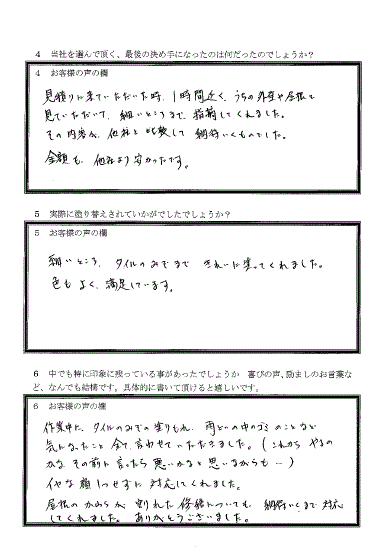 4 当社を選んで頂く、最後の決め手になったのは何だったのでしょうか？
4 お客様の声の欄
見積りに来ていただいた時、1時間近く、うちの外壁や屋根を
見ていただいて、細いところまで指摘してくれました。
その内容が、他社と比較して納得いくものでした。
金額も、他社より安かったです。
5 実際に塗り替えされていかがでしたでしょうか？
5 お客様の声の欄
細いところ、タイルのみぞまできれいに塗ってくれました。
色もよく、満足しています。
6 中でも特に印象に残っている事があったでしょうか 喜びの声、励ましのお言葉な
ど、なんでも結構です。具体的に書いて頂けると嬉しいです。
6 お客様の声の欄
作業中に、タイルのみぞの塗りもれ、雨どいの中のゴミのことなど
気になったこと全て、言わせていただきました。（これからやるの
かな、その前に言ったら悪いかなと思いながらも…）
イヤな顔1つせずに対応してくれました。
屋根のかわらが割れた修繕についても、納得いくまで対応
してくれました。ありがとうございました。